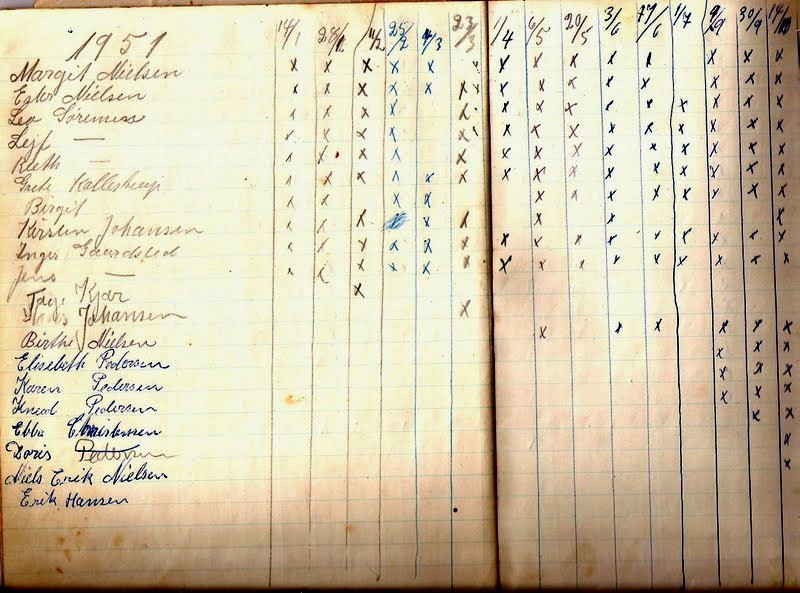 1951 14/1 28/1 11/2 25/2 11/3 23/3 1/4 6/5 20/5 3/6 17/6 1/7 9/9 30/9 14/10
Margit Nielsen x x x x x x x x x x x x x
Ester Nielsen
Leo Sørensen
Leif —
Ruth —
Grete Kallestrup
Birgit
Kirsten Johansen
Inger Gaardsted
Jens —
Tage Kjær
Johansen
Birthe Nielsen
Elisebeth Pedersen
Karen Pedersen
Knud Pedersen
Ebba Christensen
Doris Pedersen
Niels Erik Nielsen
Erik Hansen